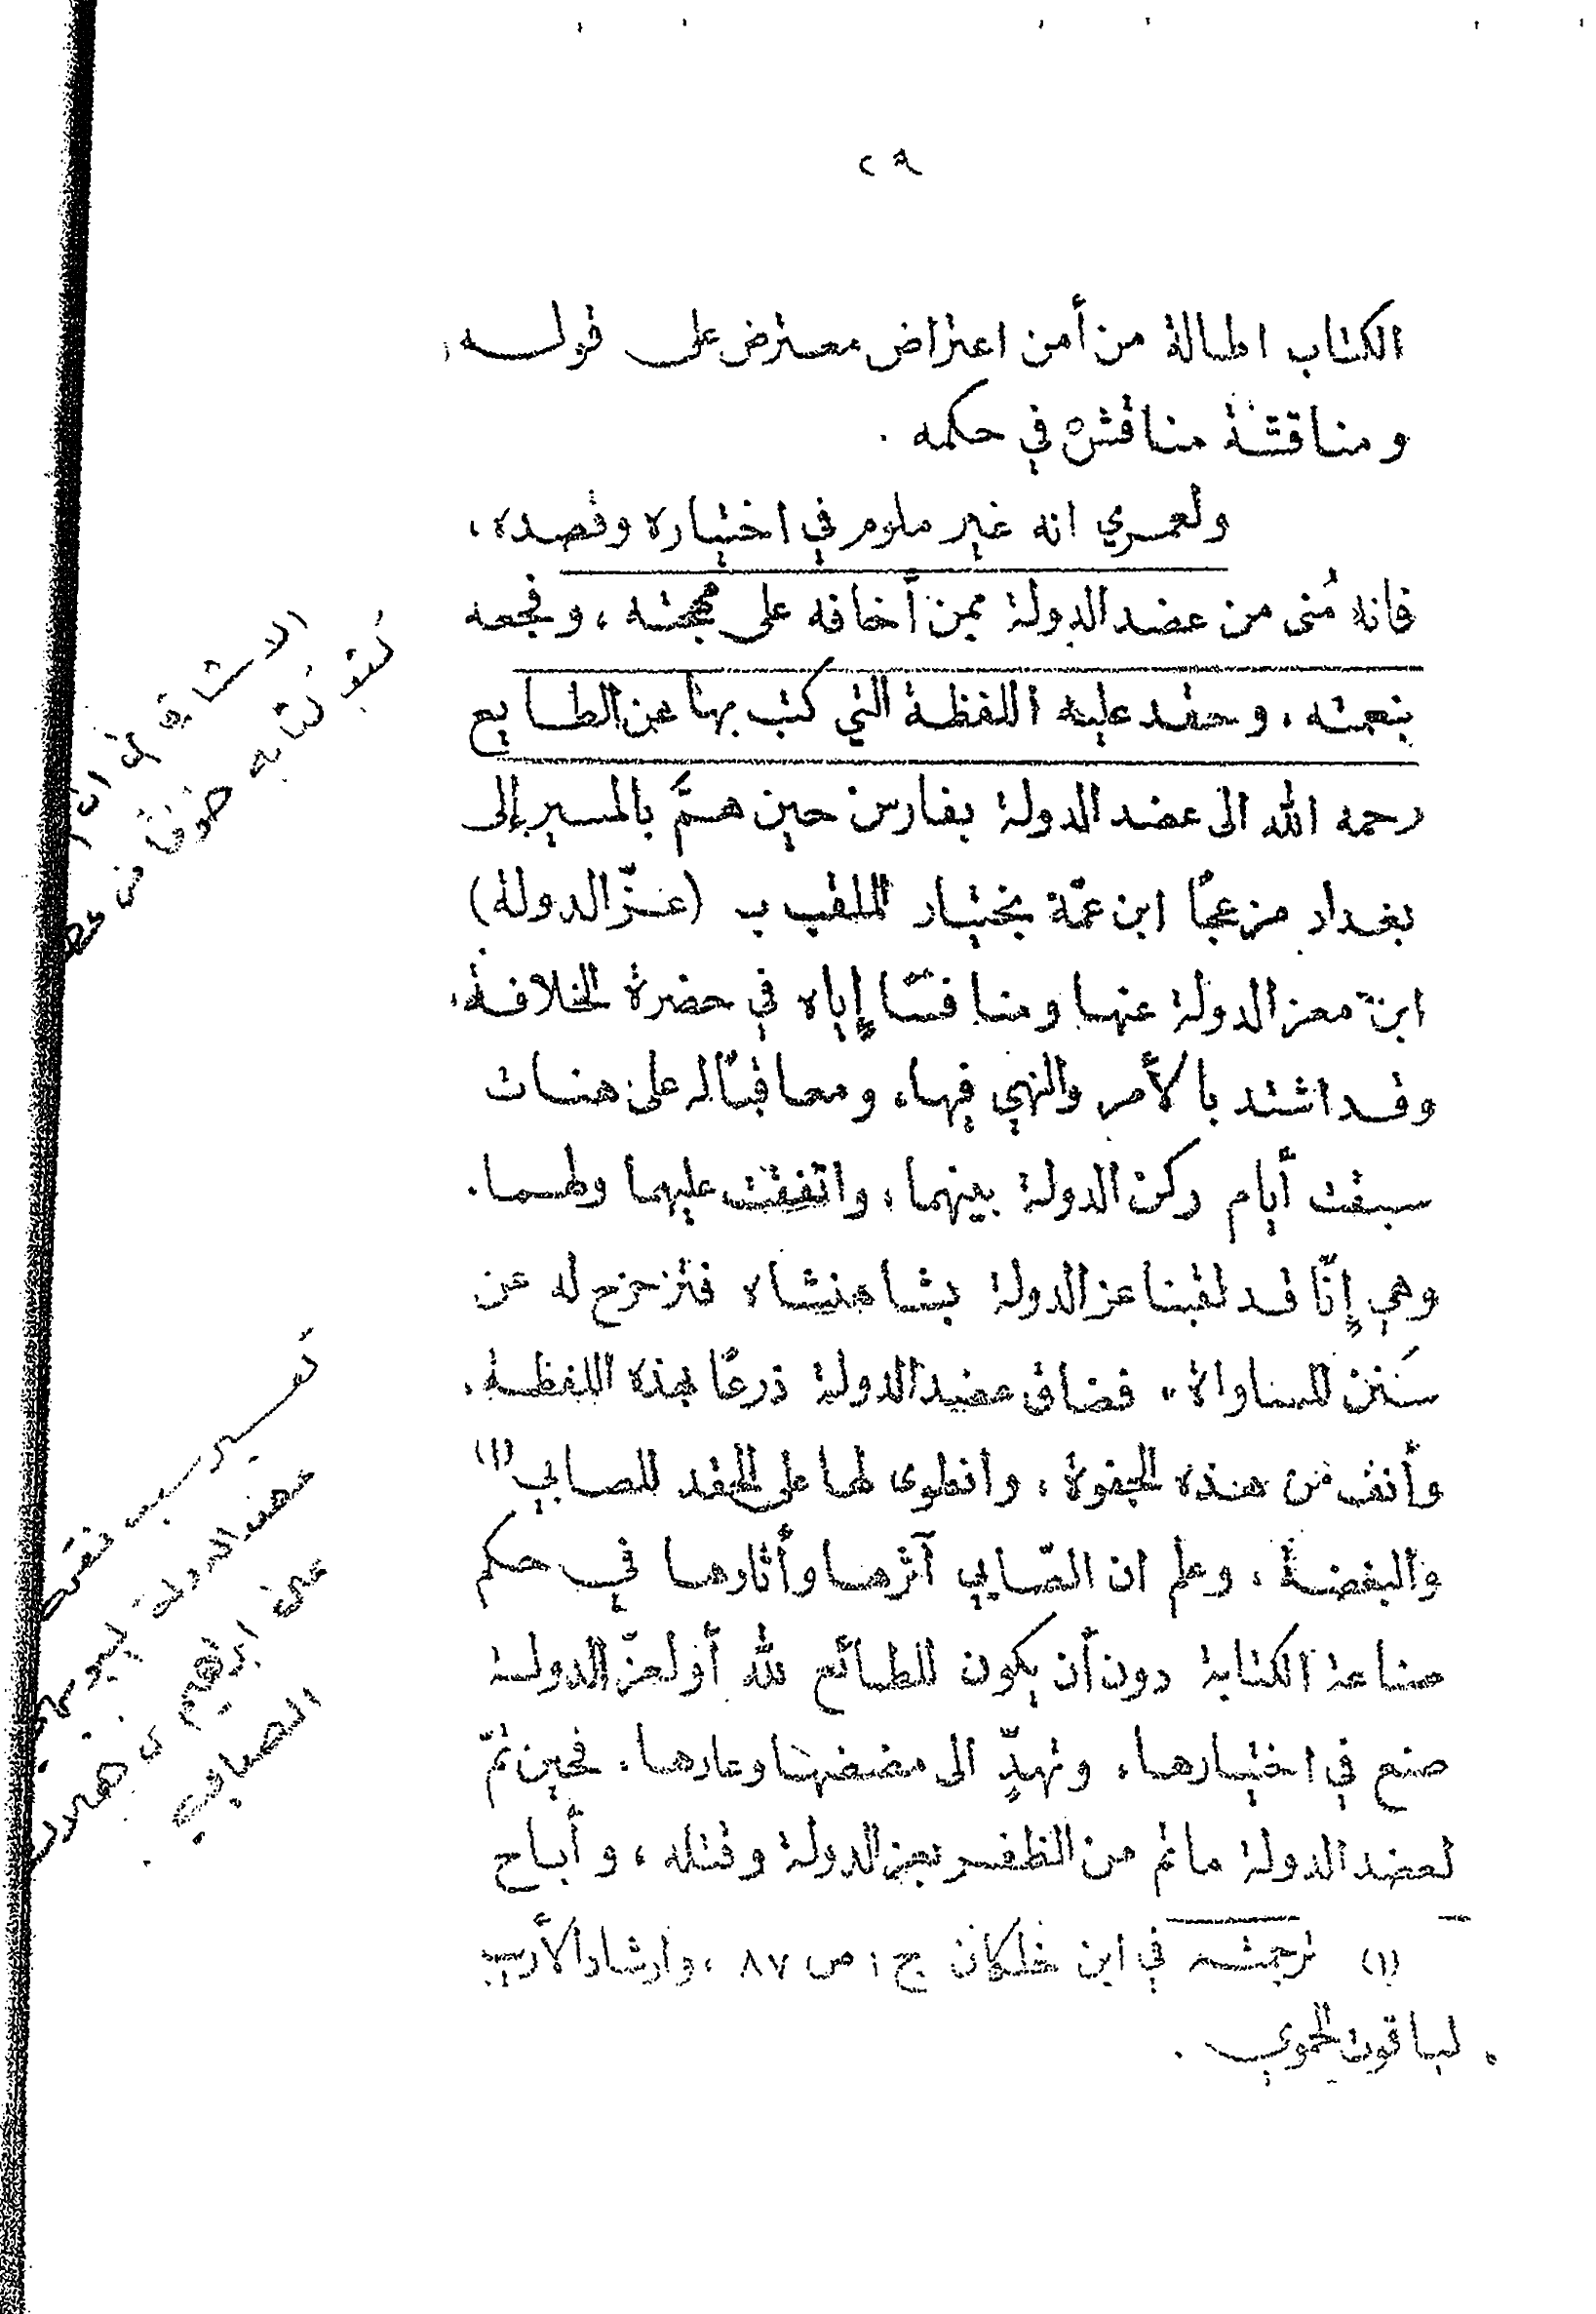 ٢٩
الكتاب اطالة من أمن اعتراض معترض على قوله،
ومناقشة مناقش في حكمه .
ولعمري انه غير ملوم في اختياره وقصده،
فانه مُنى من عضد الدولة بمن أخافه على مهجته ، وفجعه
بنعمته . وحقد عليه اللفظة التي كتب بها عن الطايع
رحمه الله الى عضد الدولة بفارس حين همَّ بالمسير إلى
بغداد مزعجًا ابن عمّة بختيار الملقب ب (عزّ الدولة)
ابن معز الدولة عنها ومنافسًا إياه في حضرة الخلافة،
وقد اشتد بالأمر والنهي فيها، ومعاقبًا له على هنات
سبقت أيام ركن الدولة بينهما ، واتفقت عليهما ولهما.
وهي إنّا قد لقبنا عز الدولة بشاهنشاه فتزحزح له عن
سَنن المساواة ، فضاق عضد الدولة ذرعًا بهذه اللفظة .
وأنف من هذه الجفوة ، وانطوى لها على الحقد للصابي (١)
والبغضة ، وعلم ان الصّابي آثرها وأثارها في حكم
صناعة الكتابة دون أن يكون للطائع لله أو لعزّ الدولة
صنع في اختيارها، وتهدٍّ الى مضضها وعارها . فحين تمّ
لعضد الدولة ما تم من الظفر بعز الدولة وقتله ، وأباح
(١) ترجمته في ابن خلكان ج ١ ص ٨٧ ، وارشاد الأريب
لياقوت الحموي .
الاشارة الى ان
كتب كتابه خوفا من عضد
تفسير سبب نقمة
عضد الدولة البويهي
على ابراهيم بن هلال
الصابي .